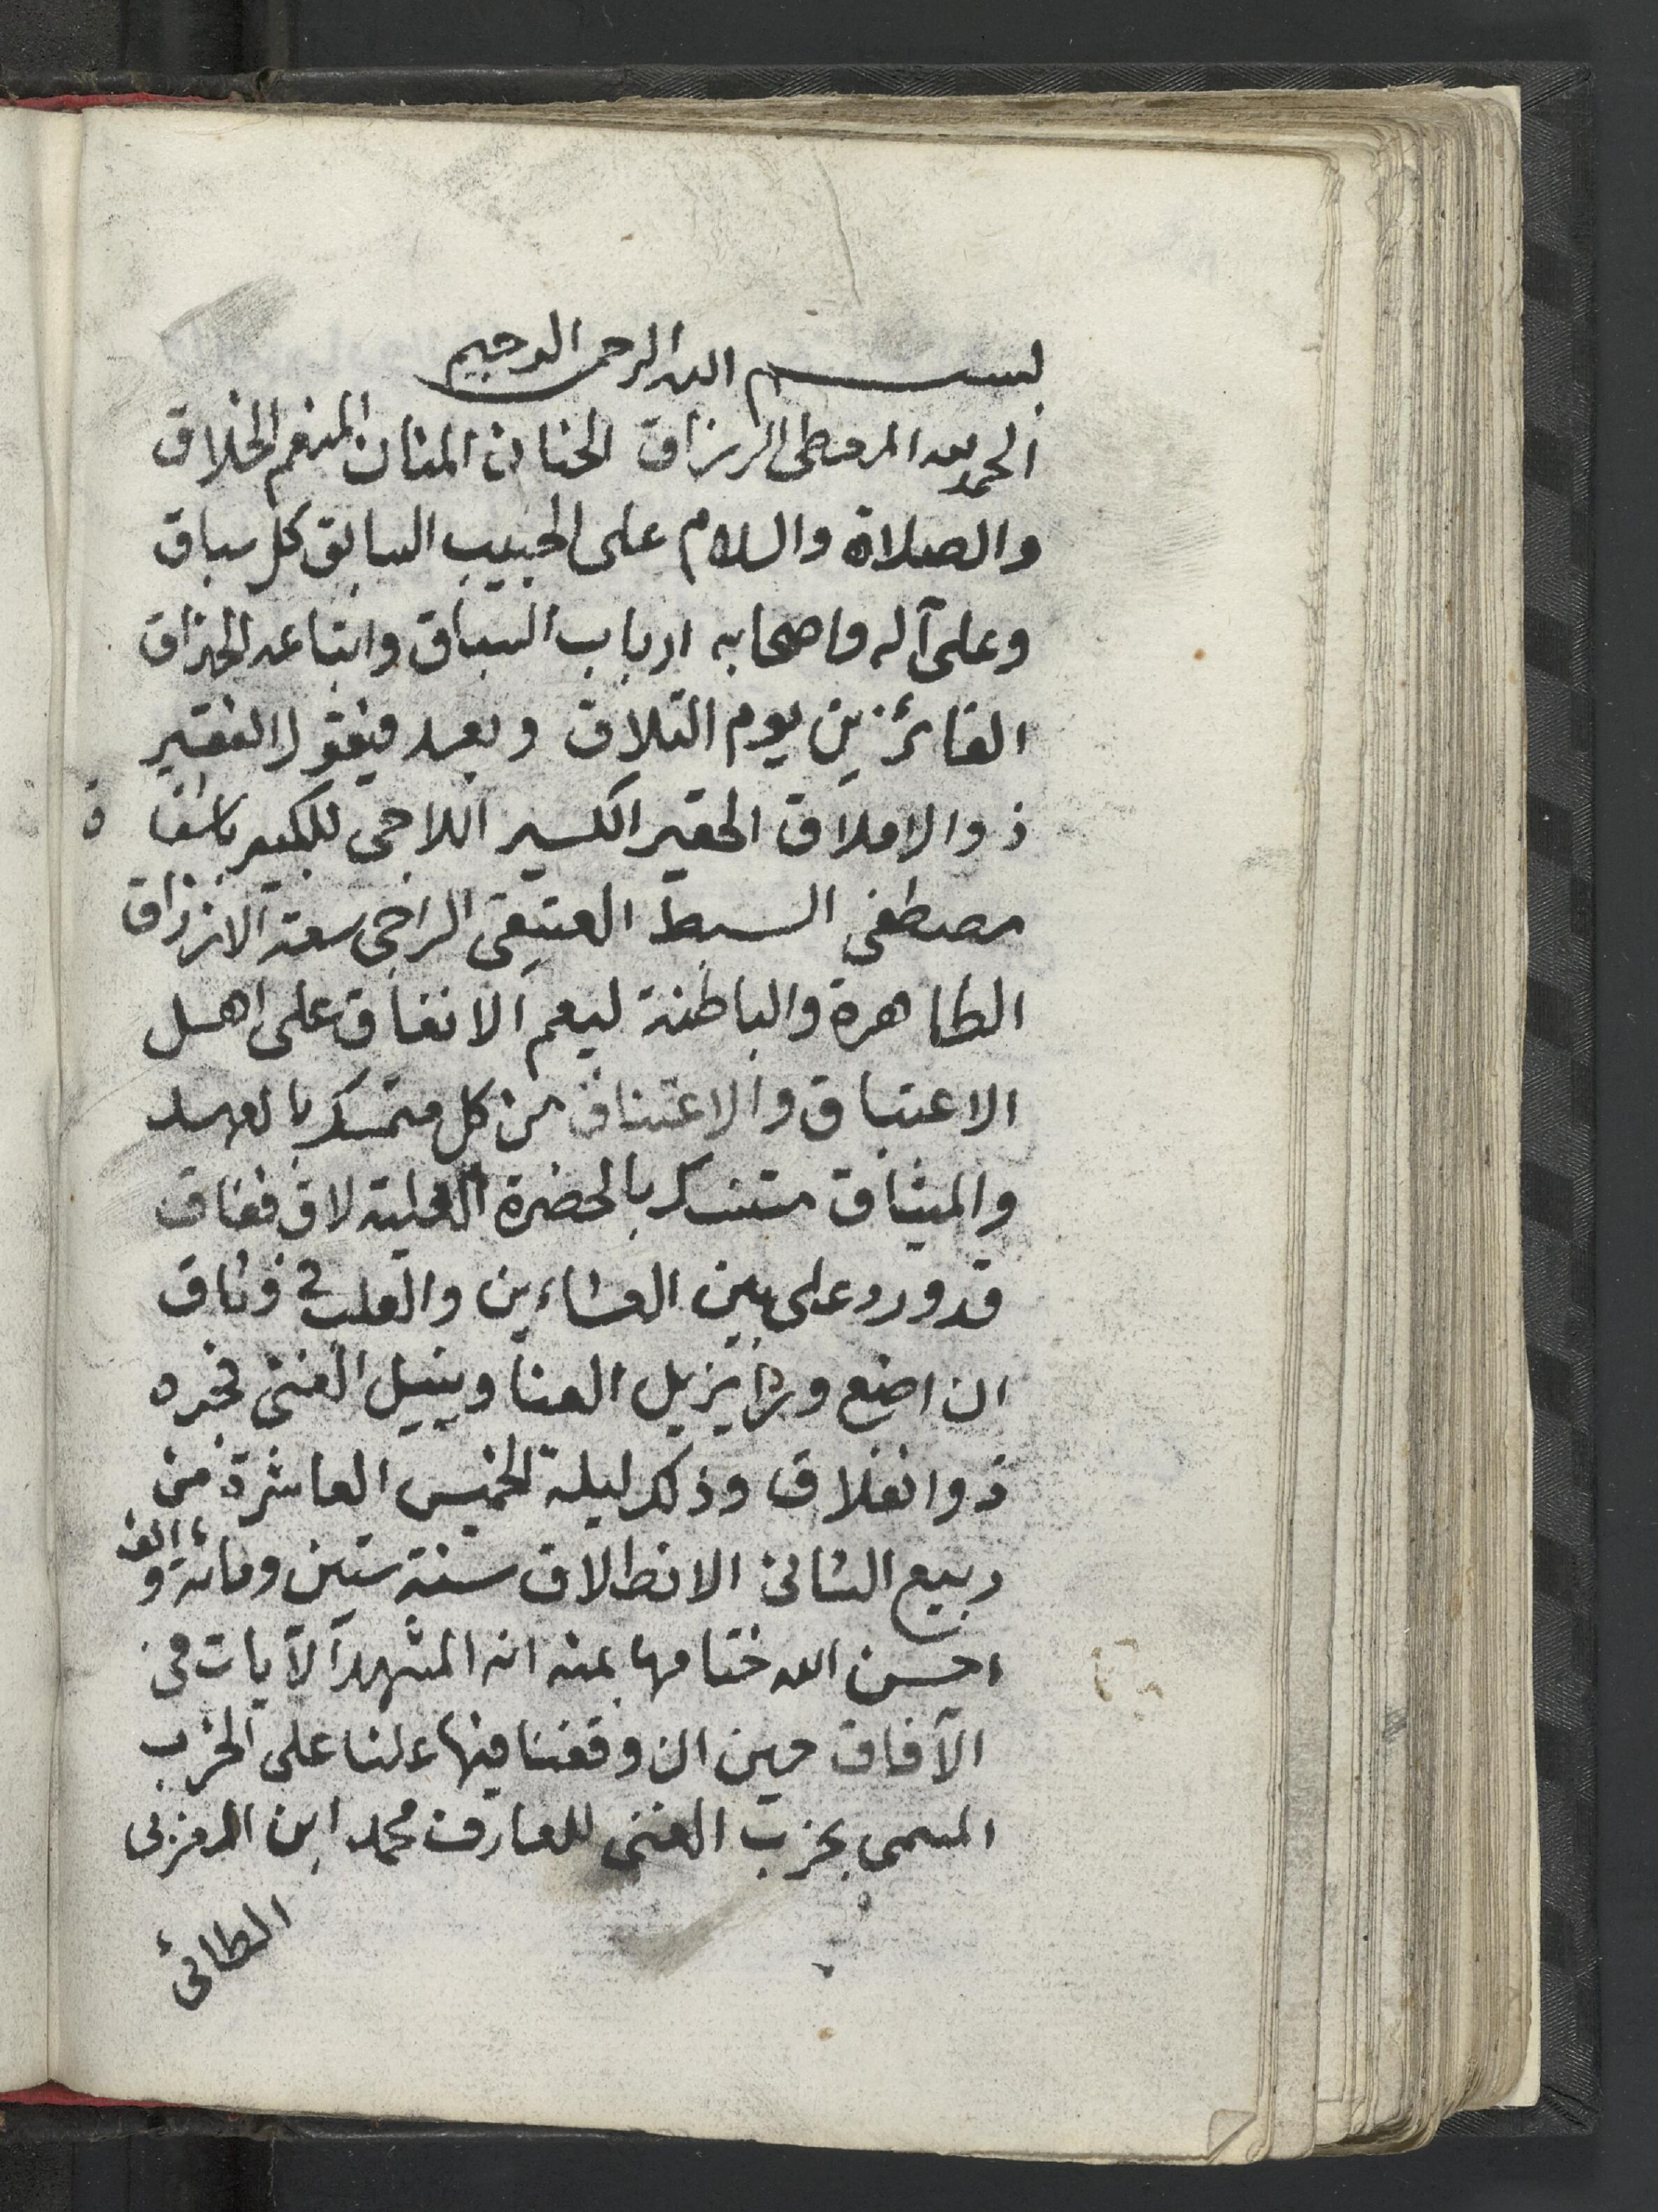 بسم الله الرحمن الرحيم
الحمد لله المعطي الرزاق الحنان المنان المنعم الخلاق
والصلاة والسلام على الحبيب السابق كل سباق
وعلى آله واصحابه ارباب السباق واتباعه الحذاق
الفائزين يوم التلاق وبعد فيقول الفقير
ذو الاملاق الحقير الكسير اللاجي للكبير باشفاق
مصطفى السبط العتيقي الراجي سعة الارزاق
الظاهرة والباطنة ليعم الانفاق على اهل
الاعتباق والاعتناق من كل متمسك بالعهد
والميثاق متنسك بالحضرة العلية لاق ففاق
قد ورد على بين العشاءين والقلب في وثاق
ان اضع وردا يزيل العنا وينيل الغنى فجره
ذو انفلاق وذلك ليلة الخميس العاشرة من
ربيع الثاني الانطلاق سنة ستين ومائة والف
احسن الله ختامها بمنه انه المشهد الآيات في
الآفاق حين ان وقفنا فيها على الحزب
المسمى بحزب الغنى للعارف محمد ابن العربي
الطائي